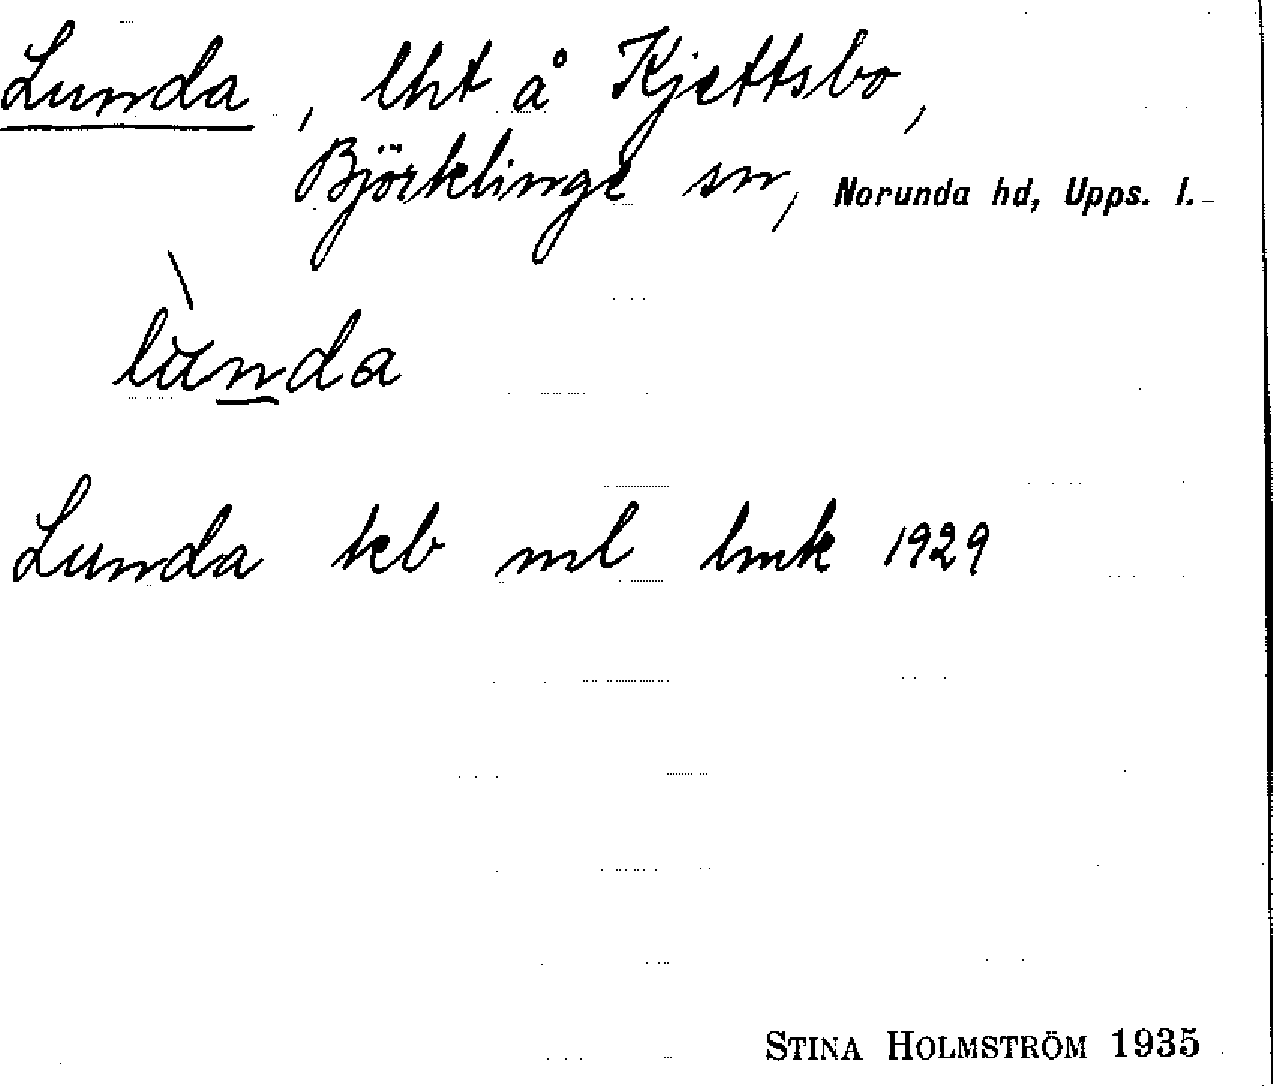 Lunda, lht å Kjettsbo,
Björklinge sn, Norunda hd, Upps. l.
lu̇nda
Lunda kb ml lmk 1929
STINA HOLMSTRÖM 1935